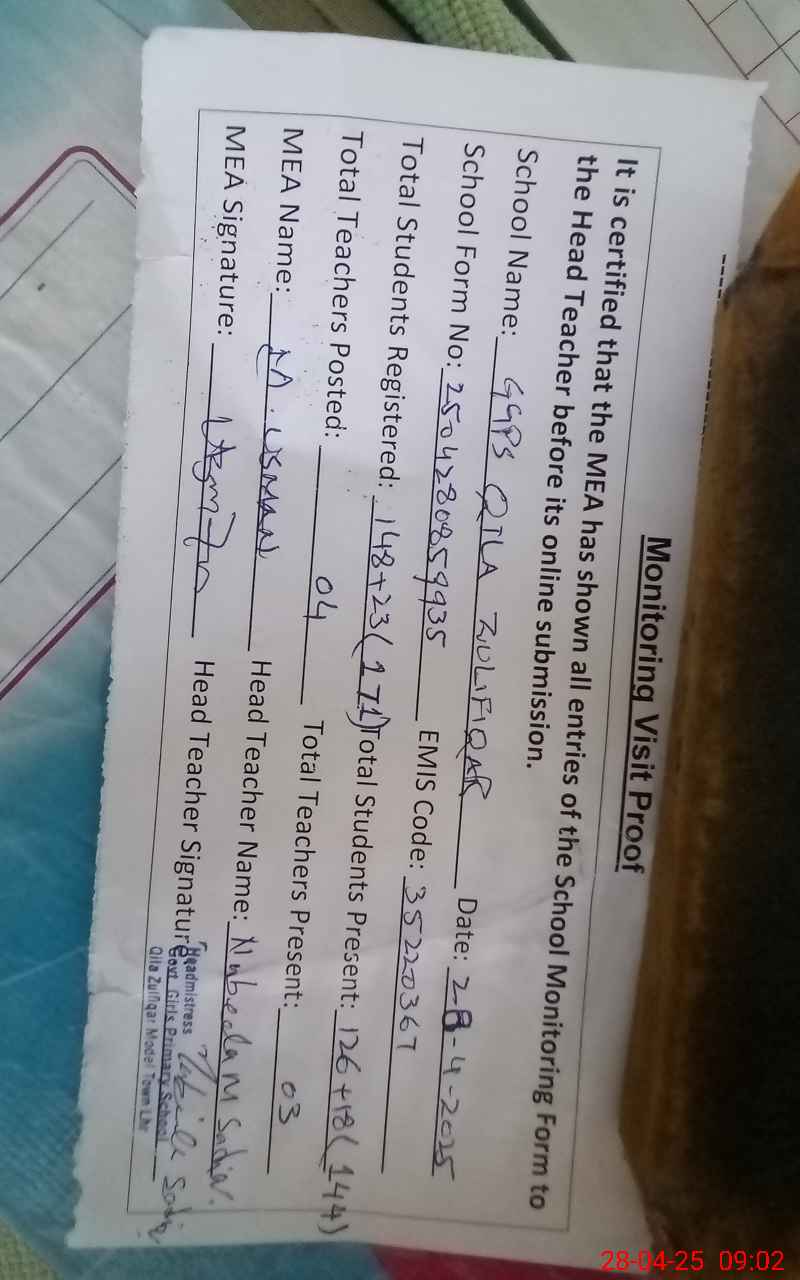 Monitoring Visit Proof
It is certified that the MEA has shown all entries of the School Monitoring Form to
the Head Teacher before its online submission.
School Name: GGPS QILA ZULIFIQAR Date: 28-4-2025
School Form No: 2504280859935 EMIS Code: 35220367
Total Students Registered: 148+23(171) Total Students Present: 126+18(144)
Total Teachers Posted: 04 Total Teachers Present: 03
MEA Name: M. USMAN Head Teacher Name: Nabeela Sadia
MEA Signature: Head Teacher Signature:
Headmistress
Govt Girls Primary School
Qila Zulfiqar Model Town Lhr
28-04-25 09:02